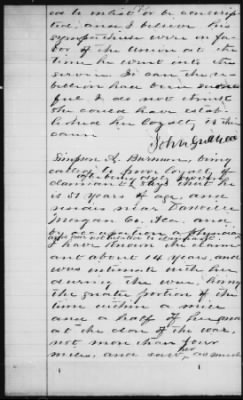 ted, and I believe his
sympathies were in fa-
vor of the Union at the
time he went into the
service. In case the re-
bellion had been success-
ful I do not doubt
she could have estab-
lished her loyalty to this
cause
Simpson A. being
called to prove loyalty of
claimant says that he
is 51 years of age, and
resides near
Morgan Co. and
by a physician
I have known the claim-
ant about 14 years, and
was intimate with her
during the war, living
the greater portion of the
time within a mile
and a half of her, and
at the close of the war,
not more than four
miles, and saw her as much